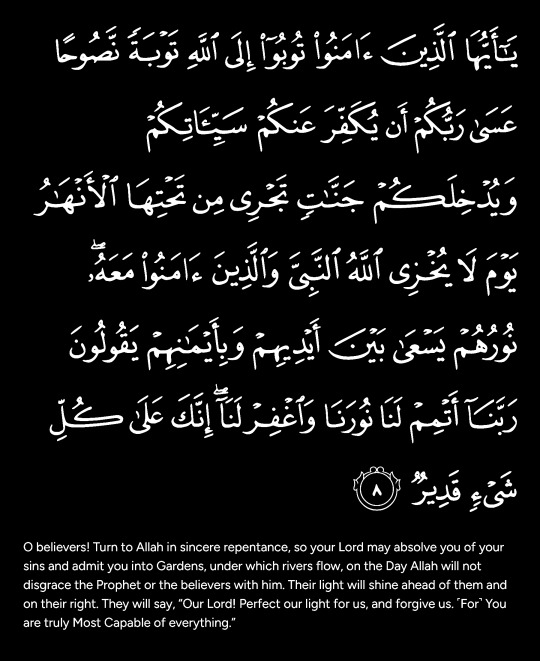 يَـٰٓأَيُّهَا ٱلَّذِينَ ءَامَنُوا۟ تُوبُوٓا۟ إِلَى ٱللَّهِ تَوْبَةًۭ نَّصُوحًا
عَسَىٰ رَبُّكُمْ أَن يُكَفِّرَ عَنكُمْ سَيِّـَٔاتِكُمْ
وَيُدْخِلَكُمْ جَنَّـٰتٍۢ تَجْرِى مِن تَحْتِهَا ٱلْأَنْهَـٰرُ
يَوْمَ لَا يُخْزِى ٱللَّهُ ٱلنَّبِىَّ وَٱلَّذِينَ ءَامَنُوا۟ مَعَهُۥ ۖ
نُورُهُمْ يَسْعَىٰ بَيْنَ أَيْدِيهِمْ وَبِأَيْمَـٰنِهِمْ يَقُولُونَ
رَبَّنَآ أَتْمِمْ لَنَا نُورَنَا وَٱغْفِرْ لَنَآ ۖ إِنَّكَ عَلَىٰ كُلِّ
شَىْءٍۢ قَدِيرٌۭ ٨
O believers! Turn to Allah in sincere repentance, so your Lord may absolve you of your
sins and admit you into Gardens, under which rivers flow, on the Day Allah will not
disgrace the Prophet or the believers with him. Their light will shine ahead of them and
on their right. They will say, “Our Lord! Perfect our light for us, and forgive us. ˹For˺ You
are truly Most Capable of everything.”